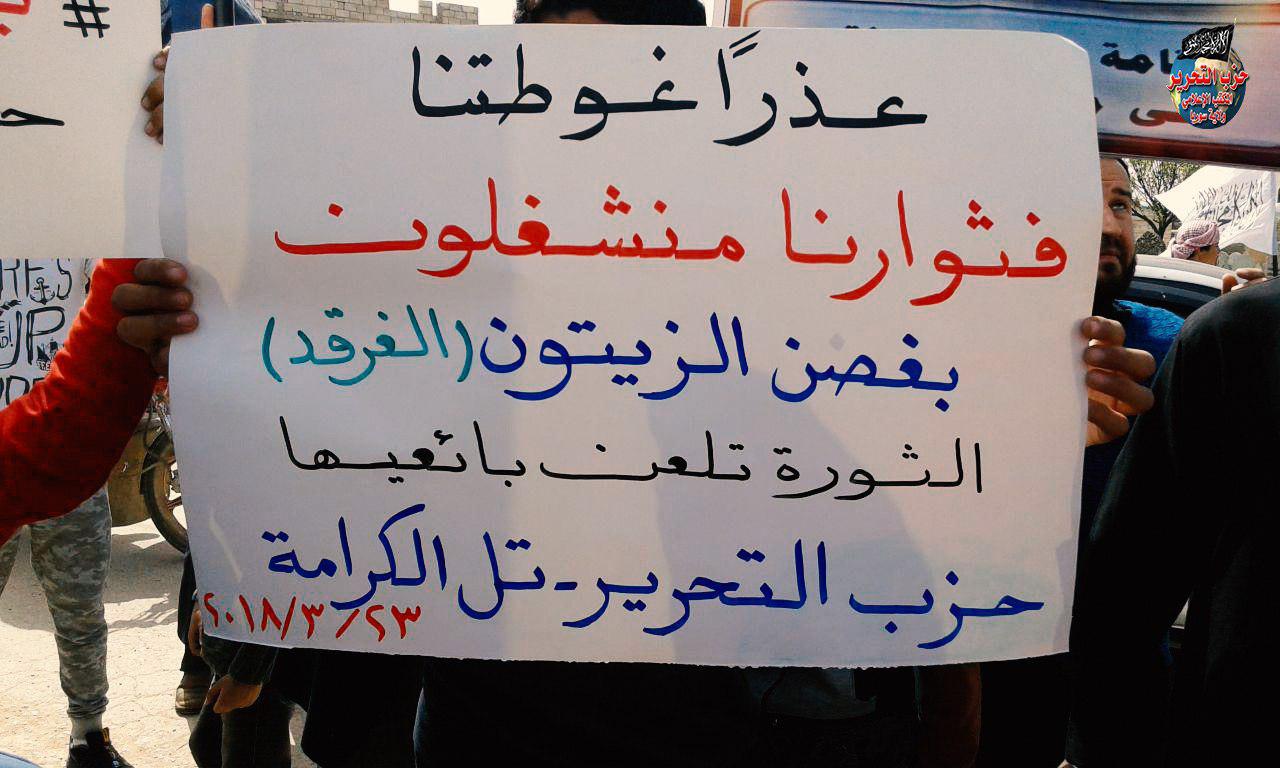 عذرًا غوطتنا
فثوارنا منشغلون
بغصن الزيتون (الغرقد)
الثورة تلعن بائعيها
حزب التحرير - تل الكرامة
٢٠١٨/٣/٢٣
حزب التحرير
المكتب الإعلامي
ولاية سوريا
#